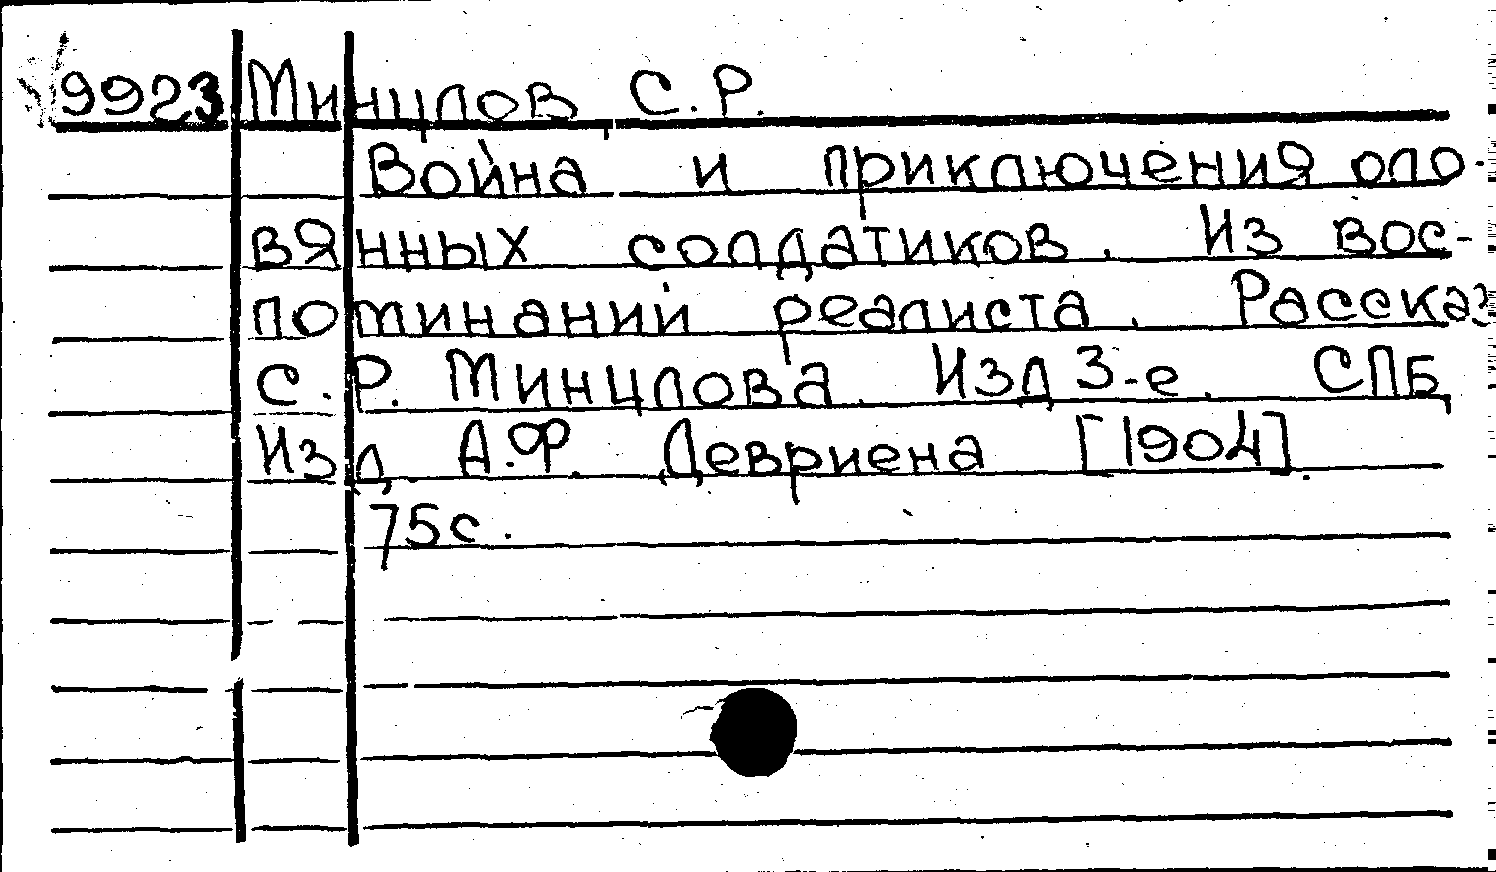 9923 Минцлов, С.Р.
Война и приключения оло-
вянных солдатиков. Из вос-
поминаний реалиста. Рассказ
С.Р. Минцлова. Изд 3-е. СПБ,
Изд. А.Ф. Девриена [1904].
75с.